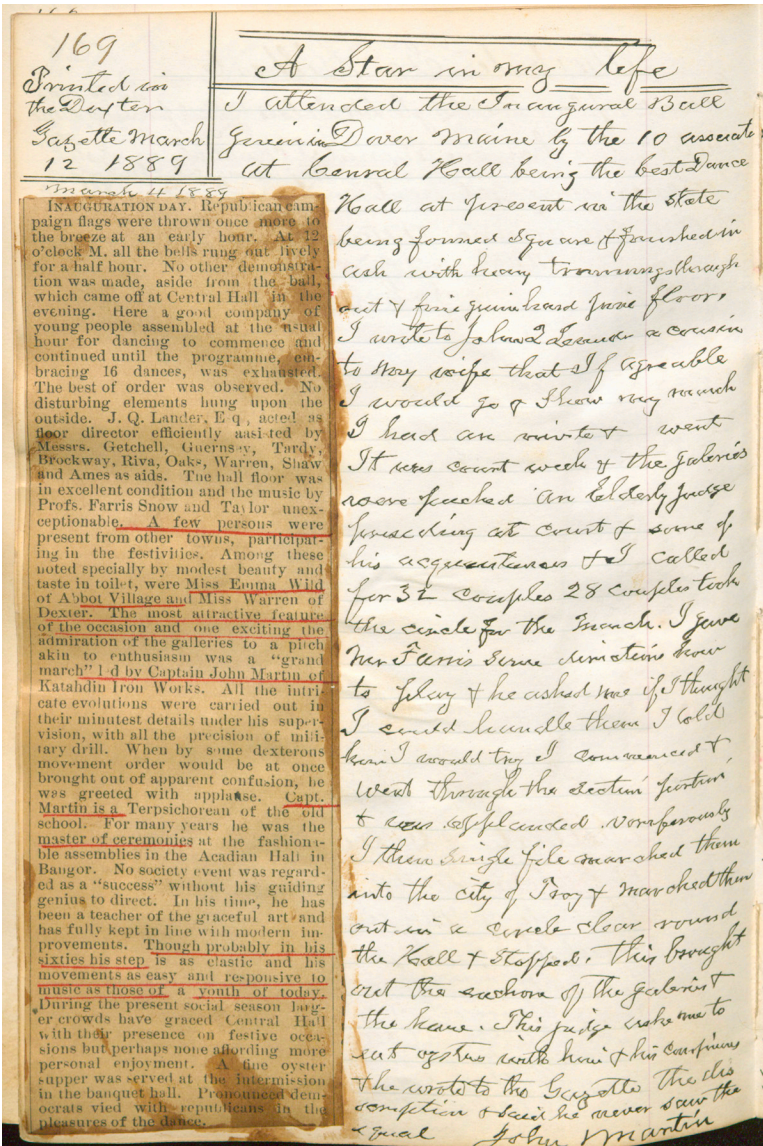 169
Printed in
the Dexter
Gazette March
12 1889
March 4 1889
INAUGURATION DAY. Republican cam-
paign flags were thrown once more to
the breeze at an early hour. At 12
o'clock M. all the bells rung out lively
for a half hour. No other demonstra-
tion was made, aside from the ball,
which came off at Central Hall in the
evening. Here a good company of
young people assembled at the usual
hour for dancing to commence and
continued until the programme, em-
bracing 16 dances, was exhausted.
The best of order was observed. No
disturbing elements hung upon the
outside. J. Q. Lander, E q, acted as
floor director efficiently assisted by
Messrs. Getchell, Guernsey, Tardy,
Brockway, Riva, Oaks, Warren, Shaw
and Ames as aids. The hall floor was
in excellent condition and the music by
Profs. Farris Snow and Taylor unex-
ceptionable. A few persons were
present from other towns, participat-
ing in the festivities. Among these
noted specially by modest beauty and
taste in toilet, were Miss Emma Wild
of Abbot Village and Miss Warren of
Dexter. The most attractive feature
of the occasion and one exciting the
admiration of the galleries to a pitch
akin to enthusiasm was a "grand
march" l d by Captain John Martin of
Katahdin Iron Works. All the intri-
cate evolutions were carried out in
their minutest details under his super-
vision, with all the precision of mili-
tary drill. When by some dexterous
movement order would be at once
brought out of apparent confusion, he
was greeted with applause. Capt.
Martin is a Terpsichorean of the old
school. For many years he was the
master of ceremonies at the fashiona-
ble assemblies in the Acadian Hall in
Bangor. No society event was regard-
ed as a "success" without his guiding
genius to direct. In his time, he has
been a teacher of the graceful art and
has fully kept in line with modern im-
provements. Though probably in his
sixties his step is as elastic and his
movements as easy and responsive to
music as those of a youth of today.
During the present social season larg-
er crowds have graced Central Hall
with their presence on festive occa-
sions but perhaps none affording more
personal enjoyment. A fine oyster
supper was served at the intermission
in the banquet hall. Pronounced dem-
ocrats vied with republicans in the
pleasures of the dance.
A Star in my life
I attended the Inaugural Ball
given in Dover Maine by the 10 associate
at Cenral Hall being the best Dance
Hall at present in the State
being formed square & finished in
ash with heavy trimmings through
out & fine quine hard pine floor.
I wrote to John Q Leander a cousin
to my wife that If agreable
I would go & Show my march
I had an invite & went
It was court week & the galeries
were packed an Elderly Judge
presiding at court & some of
his acquantances & I called
for 32 couples 28 couples took
the circle for the March. I gave
Mr Farris Some directions how
to play & he asked me if I thought
I could handle them I told
him I would try I commenced &
went through the section
& was applauded voniferously
I then single file marched them
into the city of Troy & marched them
out in a circle clear round
the Hall & Stopped. this brought
out the enchore of the galeries &
the house. This judge aske me to
eat oysters with him &
& he wrote to the Gazette the dis
scription & said he never saw the
equal John Martin